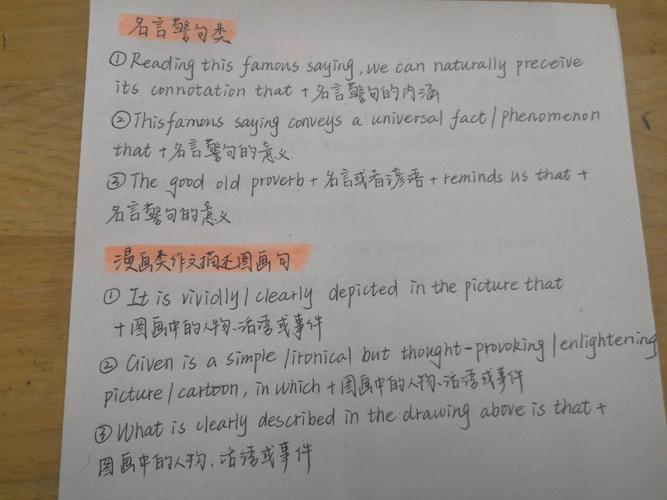 名言警句类
①Reading this famous saying, we can naturally preceive
its connotation that + 名言警句的内涵
②This famous saying conveys a universal fact/phenomenon
that + 名言警句的意义
③ The good old proverb + 名言或者谚语 + reminds us that +
名言警句的意义
漫画类作文描述图画句
① It is vividly/clearly depicted in the picture that
+图画中的人物、话语或事件
② Given is a simple/ironical but thought-provoking/enlightening
picture/cartoon, in which + 图画中的人物、话语或事件
③ What is clearly described in the drawing above is that +
图画中的人物、话语或事件